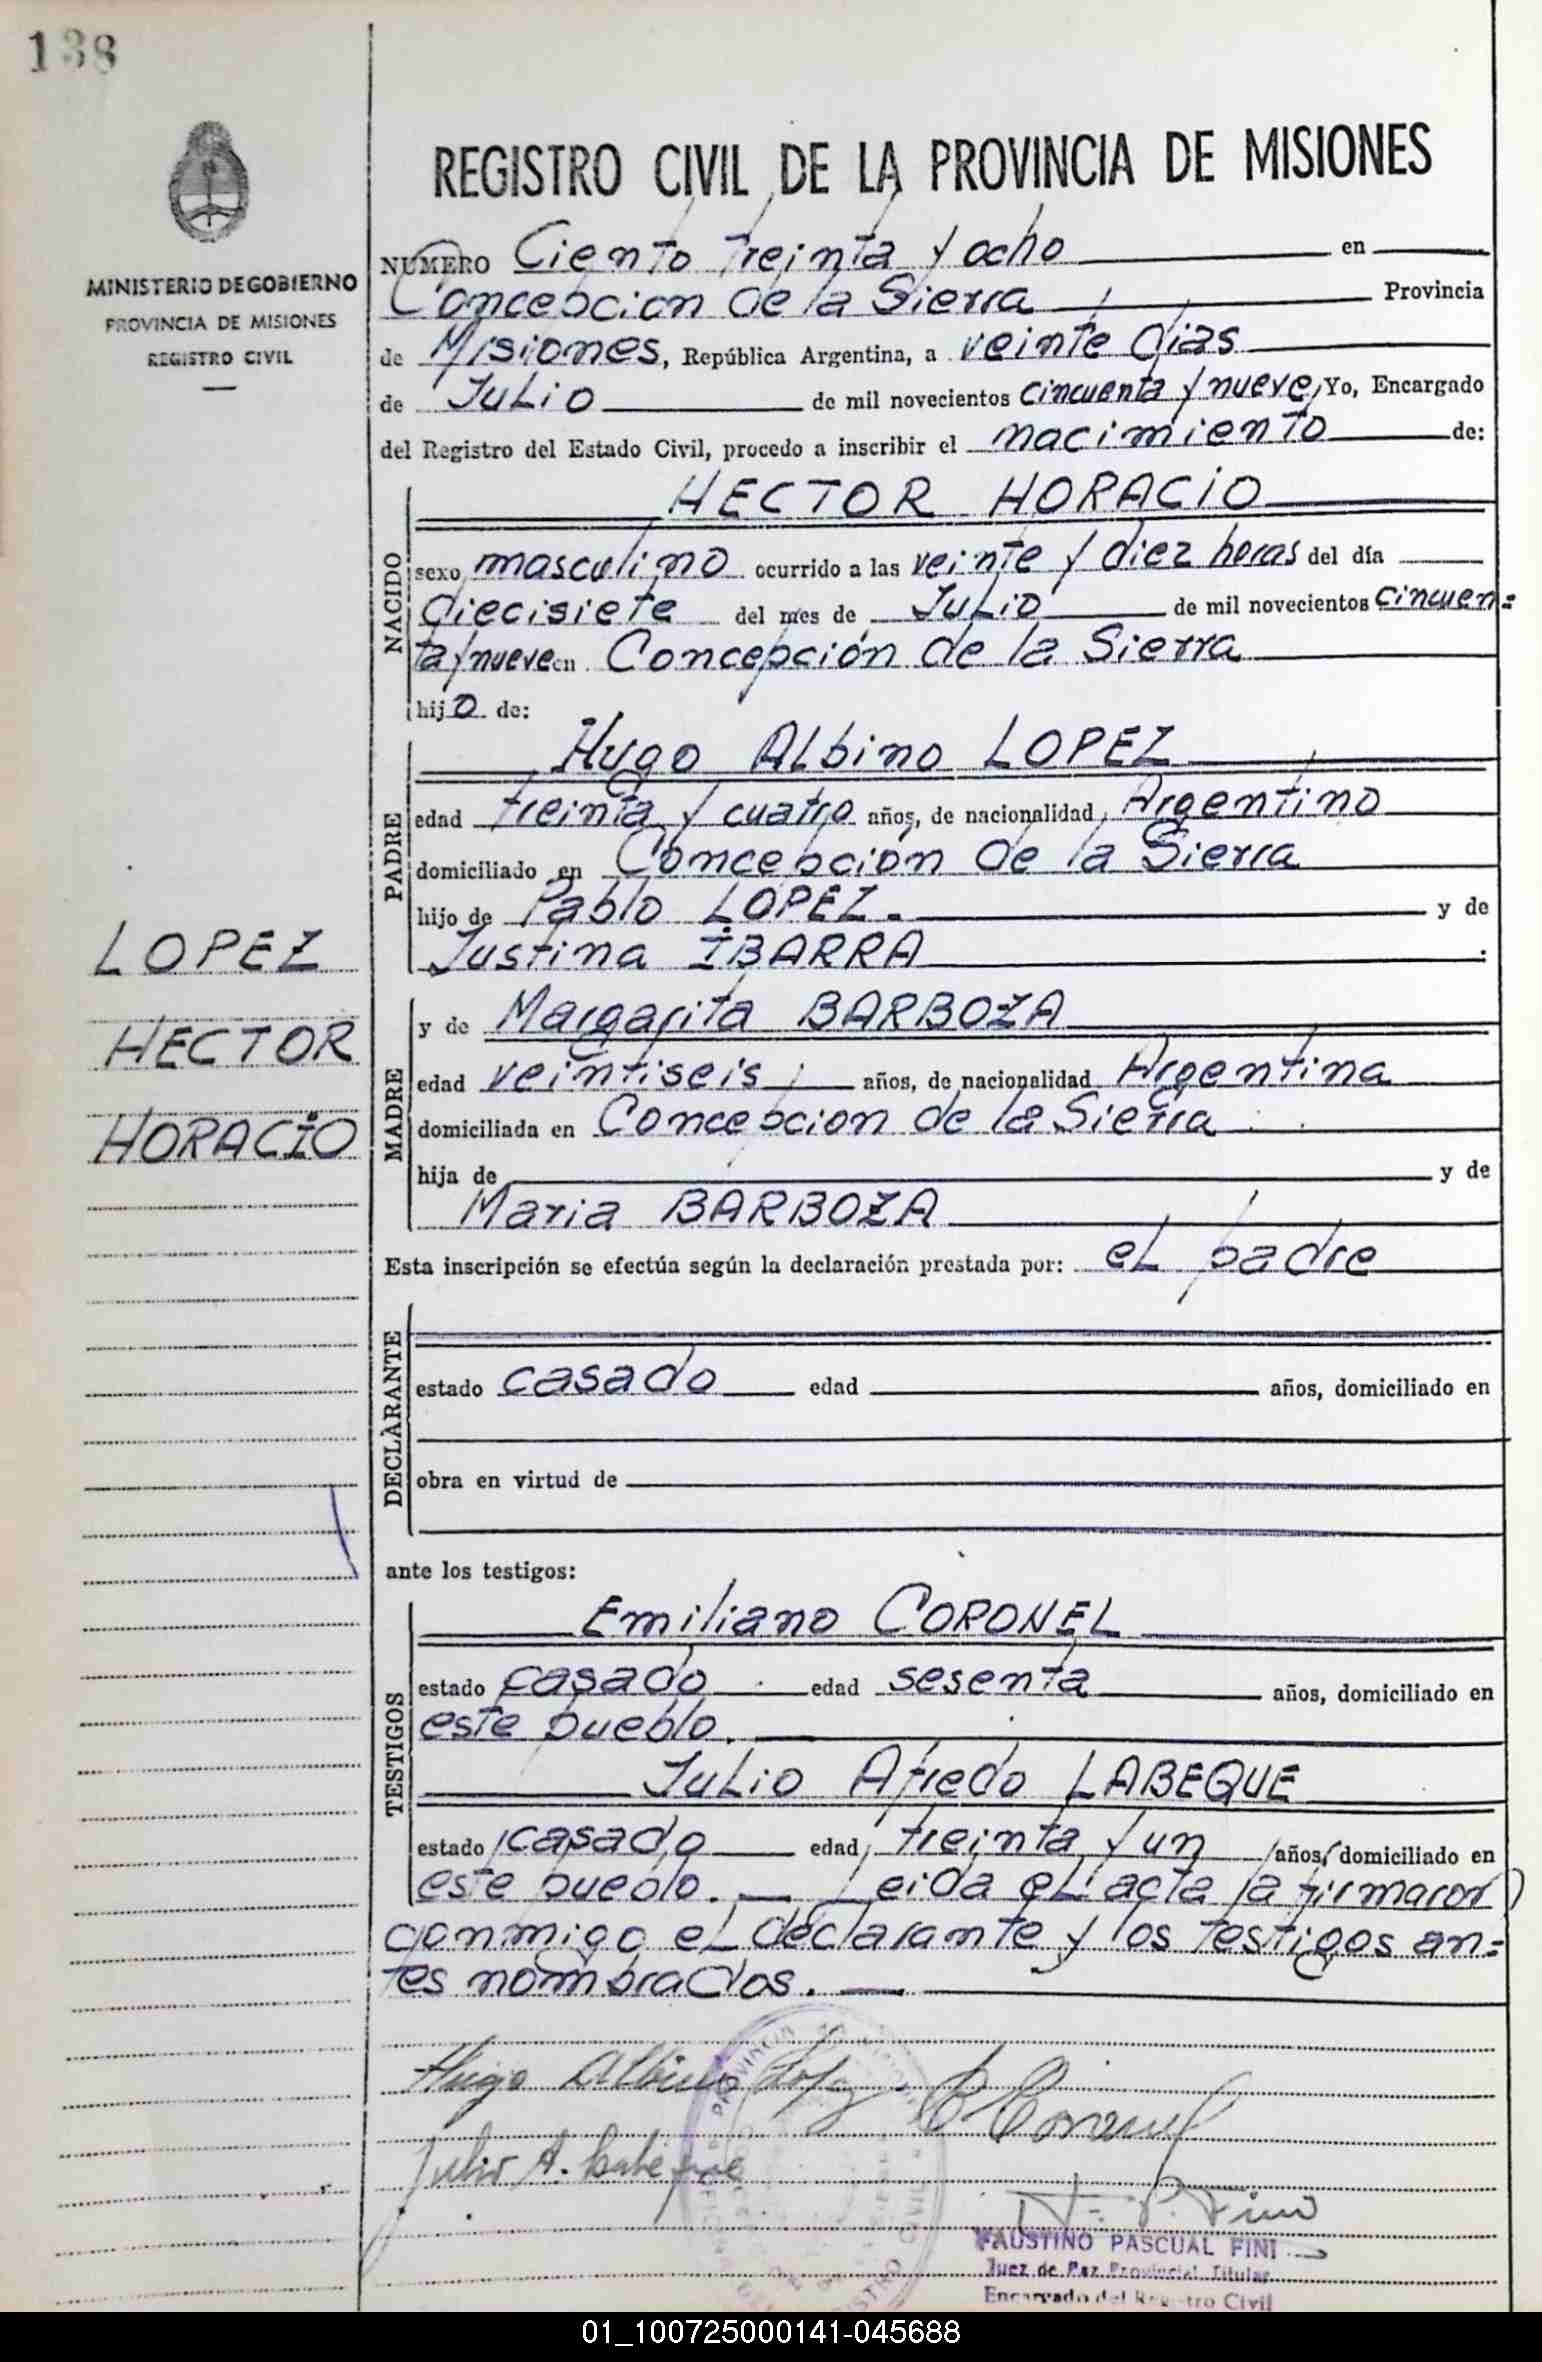 138
MINISTERIO DE GOBIERNO
PROVINCIA DE MISIONES
REGISTRO CIVIL
LOPEZ
HECTOR
HORACIO
REGISTRO CIVIL DE LA PROVINCIA DE MISIONES
NUMERO Ciento treinta y ocho en
Concepcion de la Sierra Provincia
de Misiones, República Argentina, a veinte dias
de Julio de mil novecientos cincuenta y nueve, Yo, Encargado
del Registro del Estado Civil, procedo a inscribir el nacimiento de:
NACIDO
HECTOR HORACIO
sexo masculino ocurrido a las veinte y diez horas del día
diecisiete del mes de Julio de mil novecientos cincuen=
ta y nueve en Concepción de la Sierra
hijo de:
PADRE
Hugo Albino LOPEZ
edad treinta y cuatro años, de nacionalidad Argentino
domiciliado en Concepción de la Sierra
hijo de Pablo LOPEZ. y de
Justina IBARRA
MADRE
y de Margarita BARBOZA
edad veintiseis años, de nacionalidad Argentina
domiciliada en Concepcion de la Sierra
hija de y de
Maria BARBOZA
Esta inscripción se efectúa según la declaración prestada por: el padre
DECLARANTE
estado casado edad años, domiciliado en
obra en virtud de
ante los testigos:
TESTIGOS
Emiliano CORONEL
estado casado edad sesenta años, domiciliado en
este pueblo.
Julio Afredo LABEQUE
estado casado edad treinta y un años, domiciliado en
este pueblo. Leida el acta la firmaron
conmigo el declarante y los testigos an=
tes nombrados.
Hugo Albino Lopez E Coronel
Julio A. Labeque
F. P. Fini
FAUSTINO PASCUAL FINI
Juez de Paz Provincial Titular
Encargado del Registro Civil
01_100725000141-045688